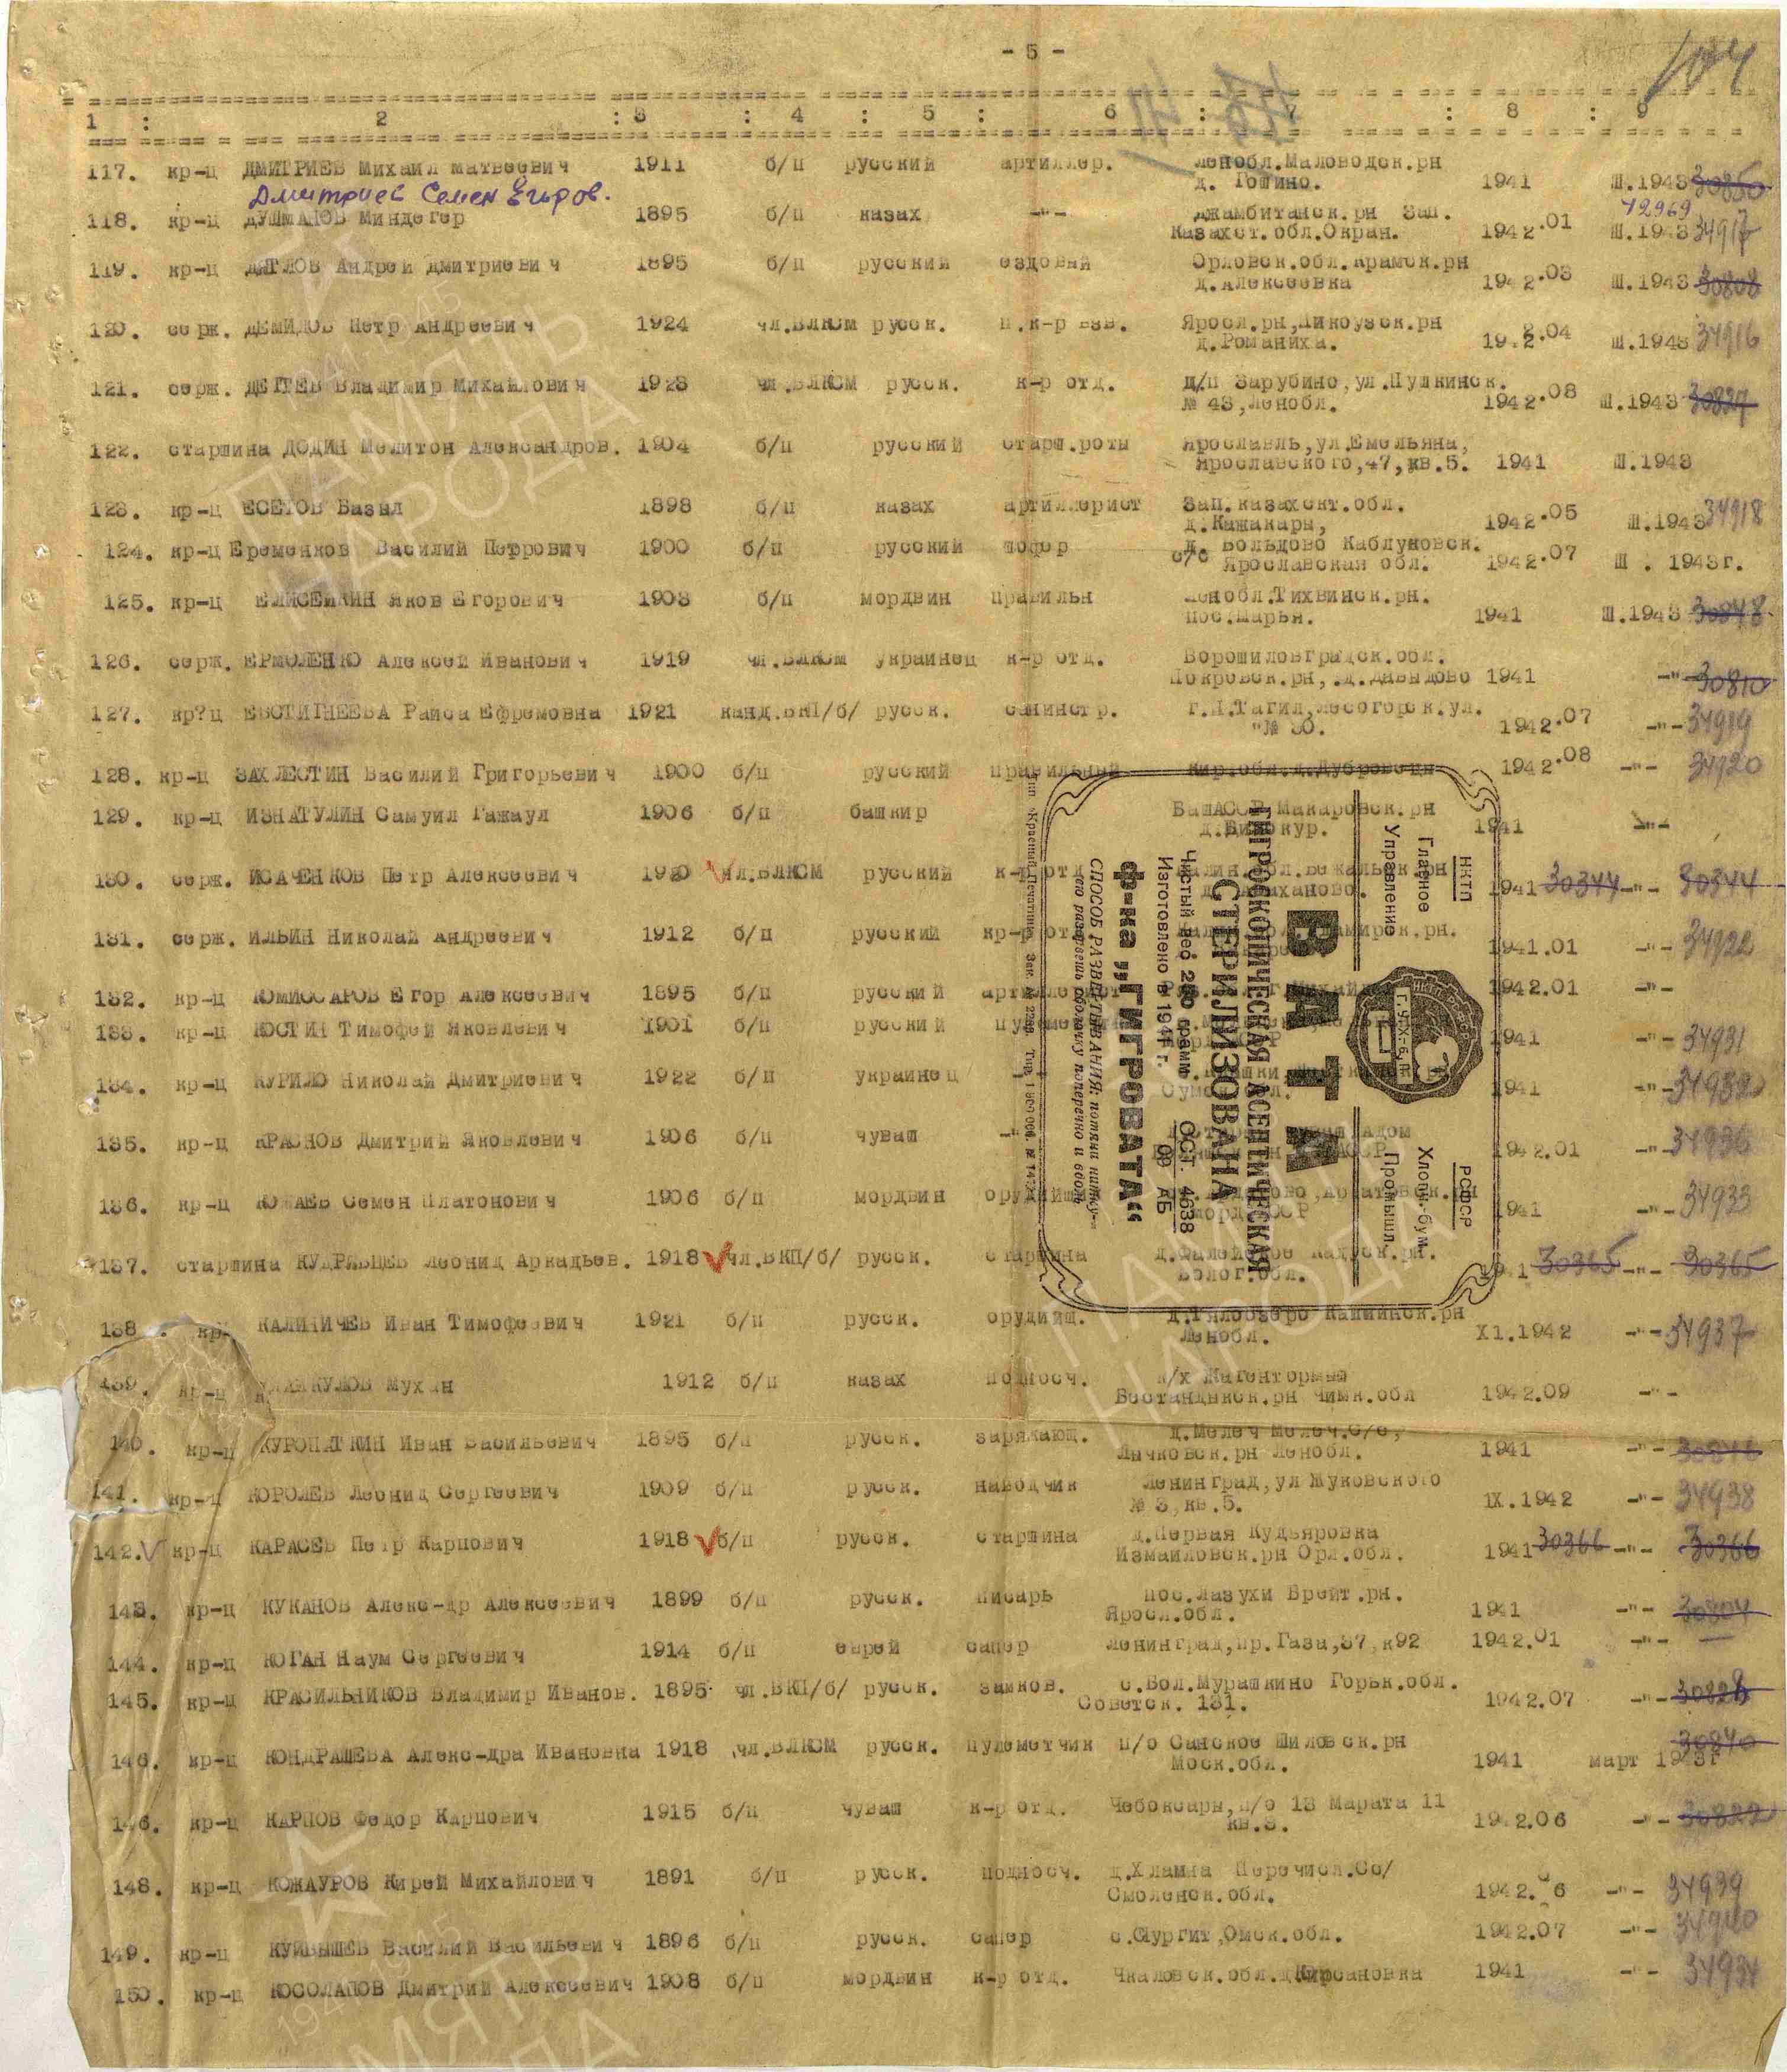 - 5 -
104
1 : 2 : 3 : 4 : 5 : 6 : 7 : 8 : 9
117. кр-ц ДМИТРИЕВ Михаил Матвеевич 1911 б/п русский артиллер. Ленобл.Маловодск.рн
д. Гошино. 1941 Ш.1943 30850
Дмитриев Семен Егоров. 12969
118. кр-ц ДУШМАНОВ Миндегер 1895 б/п казах -"- Джамбитанск.рн Зап.
Казахст.обл.Окран. 1942.01 Ш.1943 34917
119. кр-ц ДЯТЛОВ Андрей Дмитриевич 1895 б/п русский ездовый Орловск.обл.Крамск.рн
д.Алексеевка 1942.03 Ш.1943 30808
120. серж. ДЕМИДОВ Петр Андреевич 1924 чл.ВЛКСМ русск. п.к-р взв. Яросл.рн,Дикоузск.рн
д.Романиха. 1942.04 Ш.1943 34916
121. серж. ДЕГТЕВ Владимир Михайлович 1923 чл.ВЛКСМ русск. к-р отд. п/п Зарубино,ул.Пушкинск.
№ 43,Ленобл. 1942.08 Ш.1943 30827
122. старшина ДОДИН Мелитон Александров. 1904 б/п русский старш.роты Ярославль,ул.Емельяна,
Ярославского,47,кв.5. 1941 Ш.1943
123. кр-ц ЕСЕТОВ Базыл 1898 б/п казах артиллерист Зап.казахскт.обл.
д.Кажакары, 1942.05 Ш.1943 34918
124. кр-ц Еременков Василий Петрович 1900 б/п русский шофер д. Вольдово Каблуковск.
с/с Ярославская обл. 1942.07 Ш . 1943г.
125. кр-ц ЕЛИСЕЙКИН Яков Егорович 1903 б/п мордвин правильн Ленобл.Тихвинск.рн.
пос.Царын. 1941 Ш.1943 30848
126. серж. ЕРМОЛЕНКО Алексей Иванович 1919 чл.ВЛКСМ украинец к-р отд. Ворошиловградск.обл.
Покровск.рн,.д.Давыдово 1941 -"- 30810
127. кр?ц ЕВСТИГНЕЕВА Раиса Ефремовна 1921 канд.ВКП/б/ русск. санинстр. г.Н.Тагил,Лесогорск.ул.
"№ 30. 1942.07 -"- 34919
128. кр-ц ЗАХЛЕСТИН Василий Григорьевич 1900 б/п русский правильный Кир.обл.д.Дубровский 1942.08 -"- 34920
129. кр-ц ИЗНАТУЛИН Самуил Гажаул 1906 б/п башкир БашАССР,Макаровск.рн
1941 -"-
130. серж. ИСАЧЕНКОВ Петр Алексеевич 1920 чл.ВЛКСМ русский к-р отд
1941 30344 -"- 30344
131. серж. ИЛЬИН Николай Андреевич 1912 б/п русский кр-р от
1941.01 -"- 34922
132. кр-ц КОМИССАРОВ Егор Алексеевич 1895 б/п русский 1942.01 -"-
133. кр-ц КОСТИН Тимофей Яковлевич 1901 б/п русский 1941 -"- 34931
134. кр-ц КУРИЛО Николай Дмитриевич 1922 б/п украинец -"-
1941 -"- 34932
135. кр-ц КРАСНОВ Дмитрий Яковлевич 1906 б/п чуваш -"
1942.01 -"- 34936
136. кр-ц КОЖАЕВ Семен Платонович 1906 б/п мордвин
1941 -"- 34933
137. старшина КУДРЯВЦЕВ Леонид Аркадьев. 1918 чл.ВКП/б/ русск. старшина Кадуск.рн.
Волог.обл. 1941 30365 -"- 30365
138. кр- КАЛИНИЧЕВ Иван Тимофеевич 1921 б/п русск. орудийщ. д.Тялозеро Капшинск.рн
Ленобл. Х1.1942 -"- 34937
139. кр-ц Мухан 1912 б/п казах подносч. к/х Жагентормыш
Бостандыкск.рн Чимк.обл 1942.09 -"-
140. кр-ц КУРОПАТКИН Иван Васильевич 1895 б/п русск. заряжающ. д.Мелеч Мелеч.с/с,
Лычковск.рн Ленобл. 1941 -"- 30846
141. кр-ц КОРОЛЕВ Леонид Сергеевич 1909 б/п русск. наводчик Ленинград,ул Жуковского
№ 3,кв.5. 1Х.1942 -"- 34938
142. кр-ц КАРАСЕВ Петр Карпович 1918 б/п русск. старшина д.Первая Кудьяровка
Измайловск.рн Орл.обл. 1941 30366 -"- 30366
143. кр-ц КУКАНОВ Алекс-др Алексеевич 1899 б/п русск. писарь пос.Лазухи Брейт.рн.
Яросл.обл. 1941 -"- 30804
144. кр-ц КОГАН Наум Сергеевич 1914 б/п еврей сапер Ленинград,пр.Газа,37,к92 1942.01 -"- —
145. кр-ц КРАСИЛЬНИКОВ Владимир Иванов. 1895 чл.ВКП/б/ русск. замков. с.Бол.Мурашкино Горьк.обл.
Советск. 131. 1942.07 -"- 30828
146. кр-ц КОНДРАШЕВА Алекс-дра Ивановна 1918 чл.ВЛКСМ русск. пулеметчик п/о Санское Шиловск.рн 30840
Моск.обл. 1941 март 1943г
146. кр-ц КАРПОВ Федор Карпович 1915 б/п чуваш к-р отд. Чебоксары,п/о 13 Марата 11
кв.3. 1942.06 -"- 30822
148. кр-ц КОЖАУРОВ Кирей Михайлович 1891 б/п русск. подносч. д.Хламна Перечисл.Сс/
Смоленск.обл. 1942. 6 -"- 34939
149. кр-ц КУЙБЫШЕВ Василий Васильевич 1896 б/п русск. сапер с.Сургит,Омск.обл. 1942.07 -"- 34940
150. кр-ц КОСОЛАПОВ Дмитрий Алексеевич 1908 б/п мордвин к-р отд. Чкаловск.обл.д.Кирсановка 1941 -"- 34934
НКТП РСФСР
Главное Хлопч.-бум.
Управление Промышл.
ВАТА
ГИГРОСКОПИЧЕСКАЯ АСЕПТИЧЕСКАЯ
СТЕРИЛИЗОВАНА
Чистый вес 250 грамм ОСТ. 4638
Изготовлено в 1941 г. АБ
Ф-ка „ГИГРОВАТА“
СПОСОБ РАЗВЕРТЫВАНИЯ: потяни нитку—
это разорвешь оболочку поперечно и вдоль
ПАМЯТЬ
НАРОДА
1941-1945